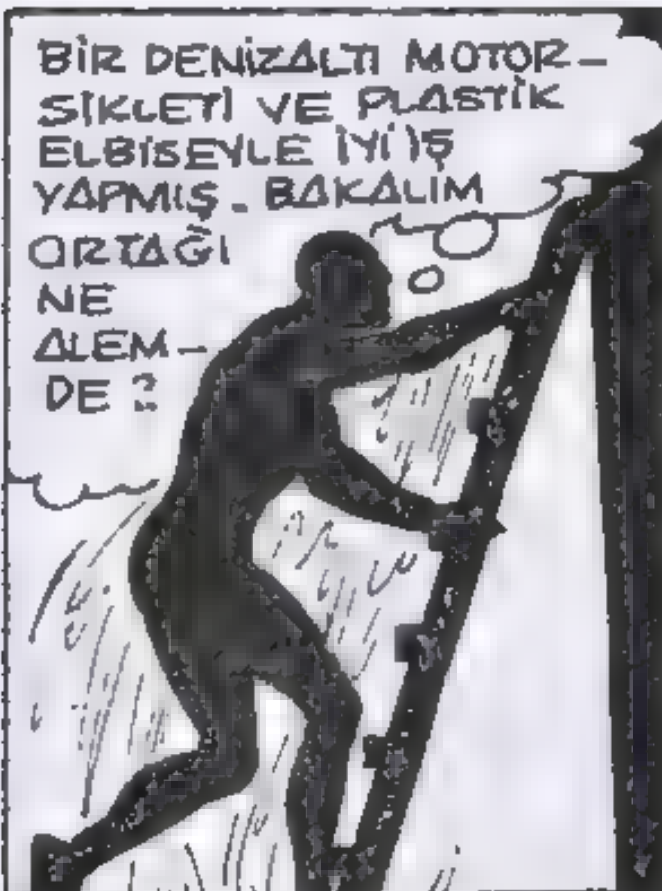 BİR DENİZALTI MOTOR-
SİKLETİ VE PLASTİK
ELBİSEYLE İYİ İŞ
YAPMIŞ. BAKALIM
ORTAĞI
NE
ALEM-
DE ?